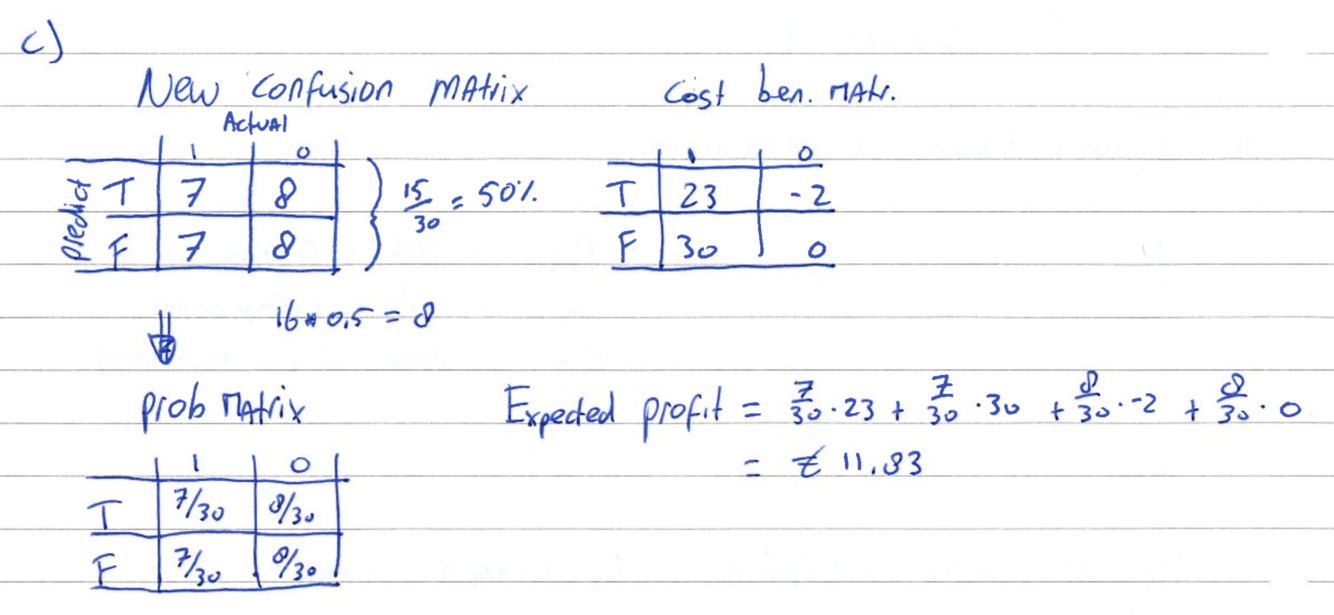 c)
New confusion MAtrix
Cost ben. MAtr.
Actual
1 0
1 0
predict
T 7 8
15/30 = 50%
T 23 -2
F 7 8
F 30 0
16 * 0,5 = 8
prob MAtrix
Expected profit = 7/30 · 23 + 7/30 · 30 + 8/30 · -2 + 8/30 · 0
= € 11.83
1 0
T 7/30 8/30
F 7/30 8/30